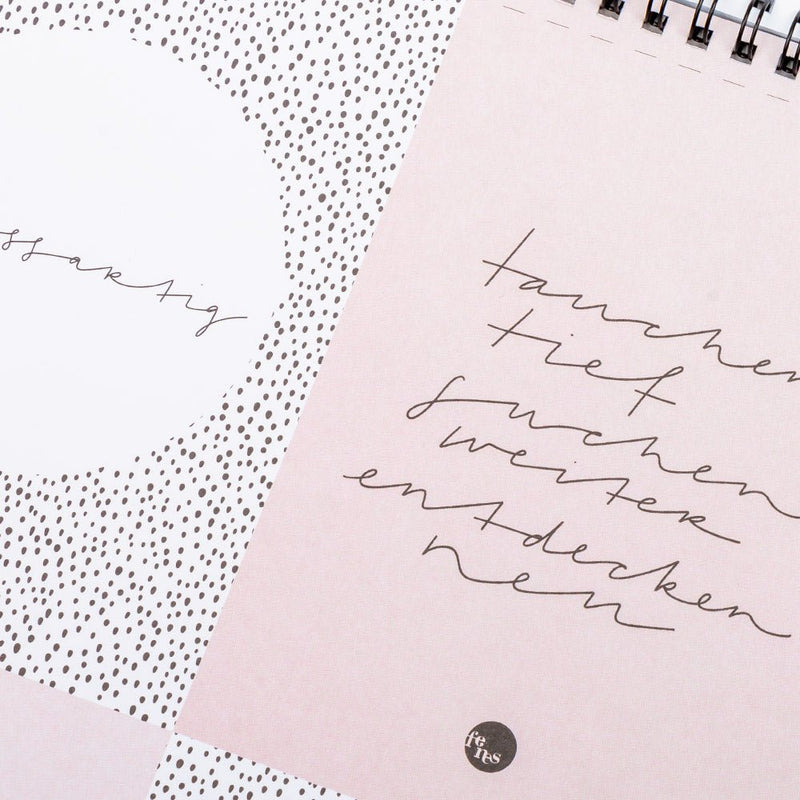 ssartig
tauchen
tief
suchen
weiter
entdecken
neu
fe
nes